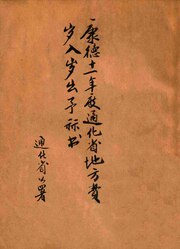 康德十一年度通化省地方費
岁入岁出予祘书
通化省公署